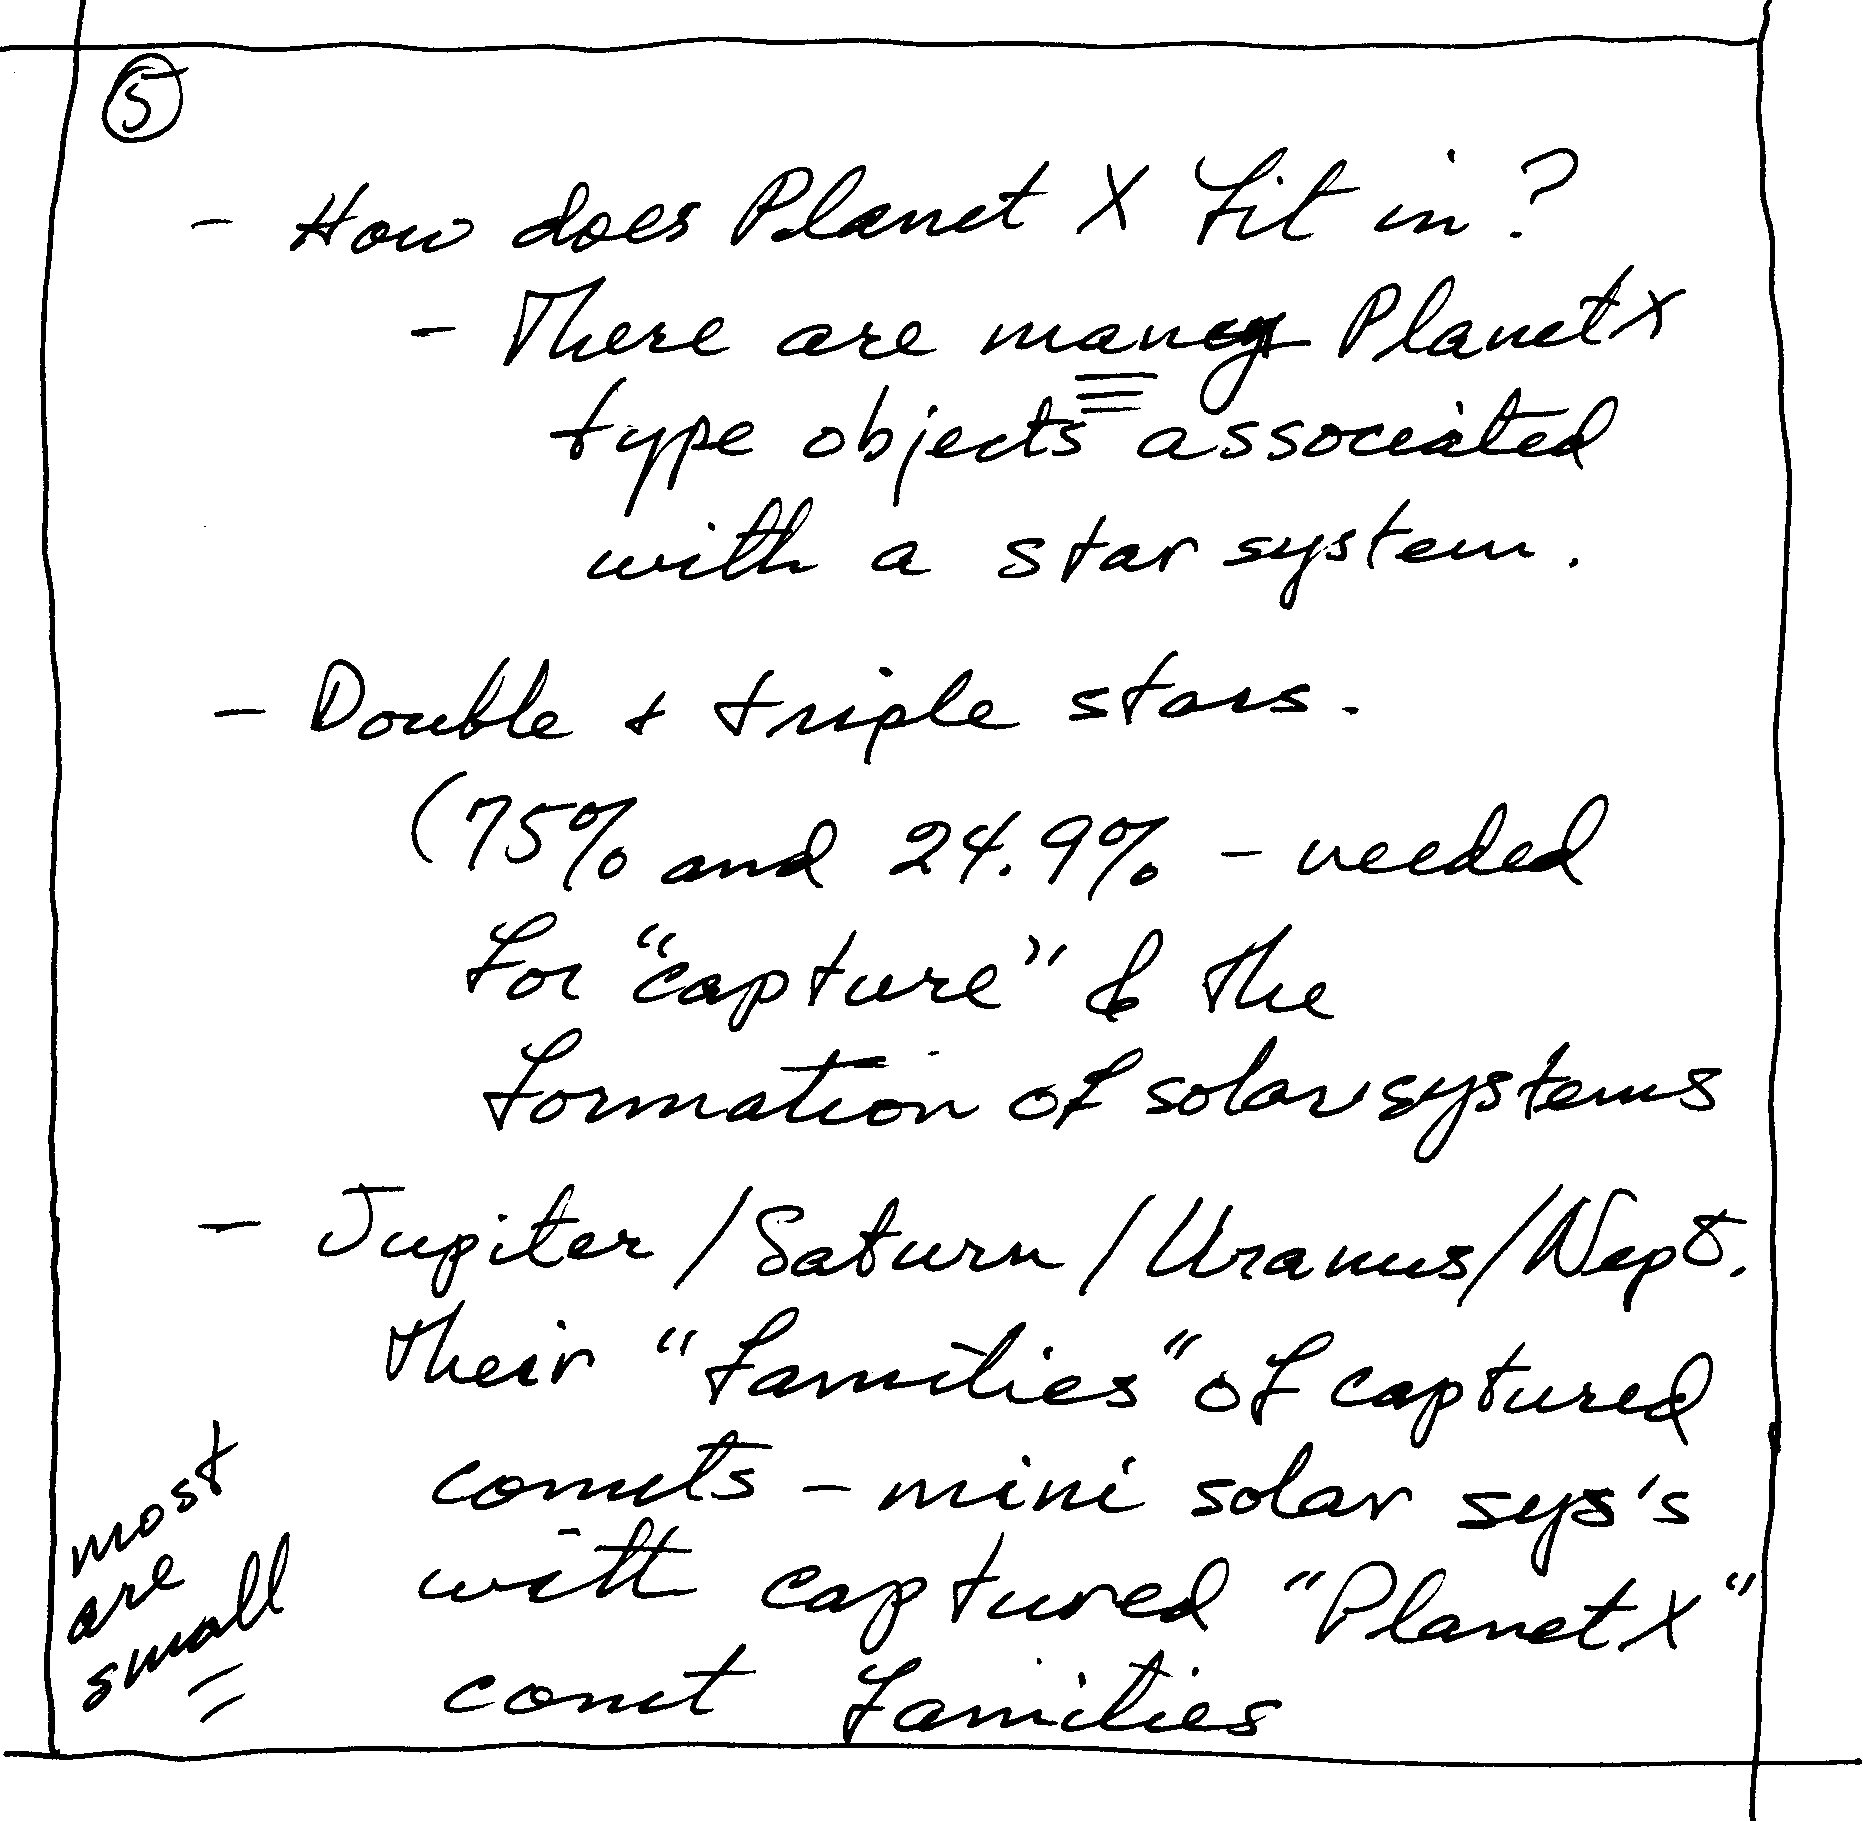 5
- How does Planet X fit in?
- There are many Planet X
type objects associated
with a star system.
- Double + triple stars.
(75% and 24.9% - needed
for "capture" & the
formation of solar systems
- Jupiter/Saturn/Uranus/Nept.
their "families" of captured
comets - mini solar sys's
with captured "Planet X"
comet families
most
are
small